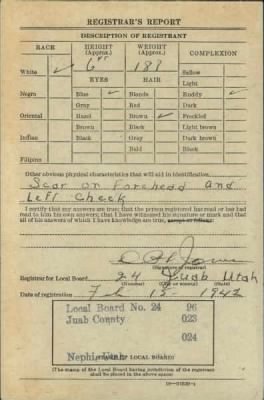 REGISTRAR'S REPORT
DESCRIPTION OF REGISTRANT
RACE HEIGHT (Approx.) WEIGHT (Approx.) COMPLEXION
White ✓ 6 ft 188 Sallow
EYES HAIR Light
Negro Blue ✓ Blonde Ruddy ✓
Gray Red Dark
Oriental Hazel Brown ✓ Freckled
Brown Black Light brown
Indian Black Gray Dark brown
Bald Black
Filipino
Other obvious physical characteristics that will aid in identification
Scar on Forehead and
Left Cheek
I certify that my answers are true; that the person registered has read or has had
read to him his own answers; that I have witnessed his signature or mark and that
all of his answers of which I have knowledge are true, except as follows:
(Signature of registrar)
Registrar for Local Board 24 Juab Utah
(Number) (City or county) (State)
Date of registration Feb 15 - 1942
Local Board No. 24 96
Juab County 023
024
Nephi, Utah
(STAMP OF LOCAL BOARD)
(The stamp of the Local Board having jurisdiction of the registrant
shall be placed in the above space)